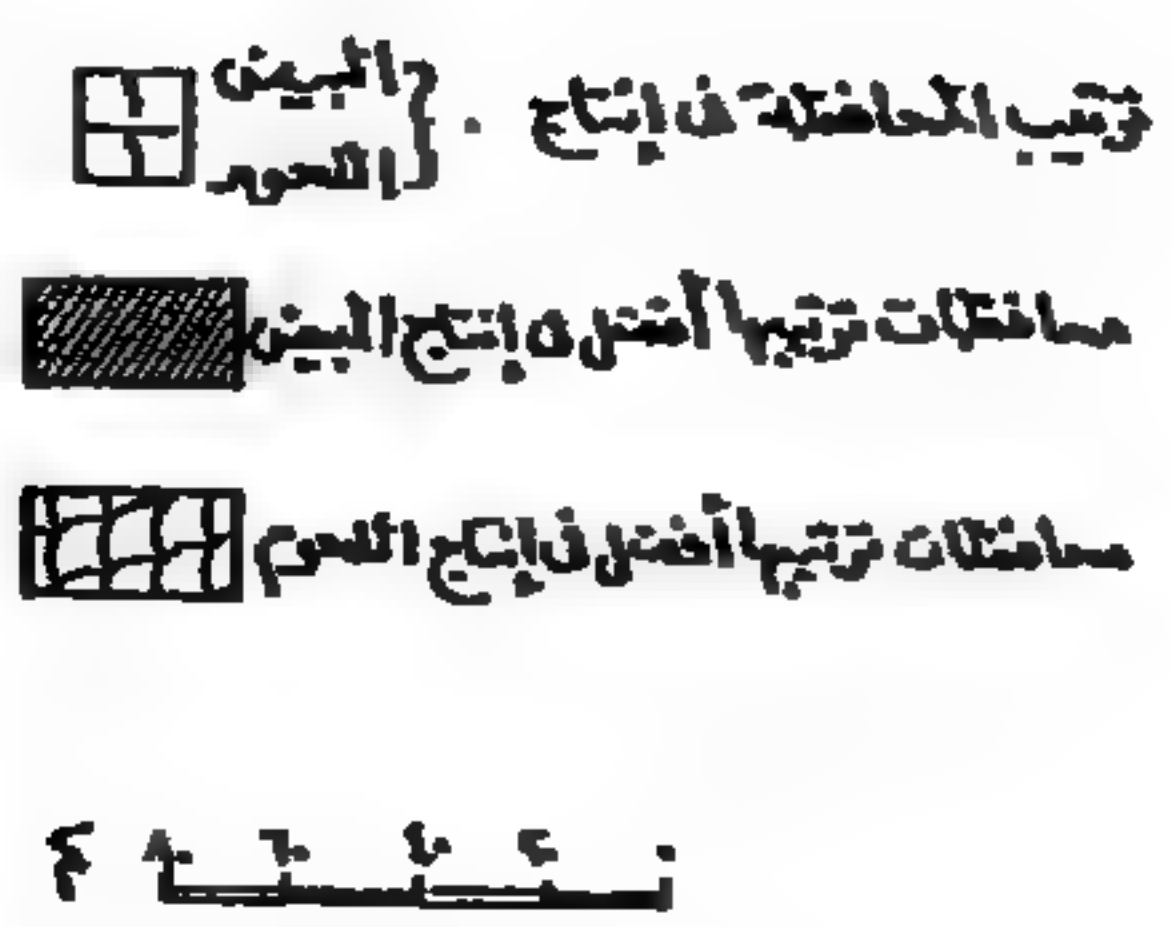 ترتيب المحافظة فى إنتاج
البيض
اللحوم
محافظات ترتيبها أفضل فى إنتاج البيض
محافظات ترتيبها أفضل فى إنتاج اللحم
٠ ٢٠ ٤٠ ٦٠ ٨٠